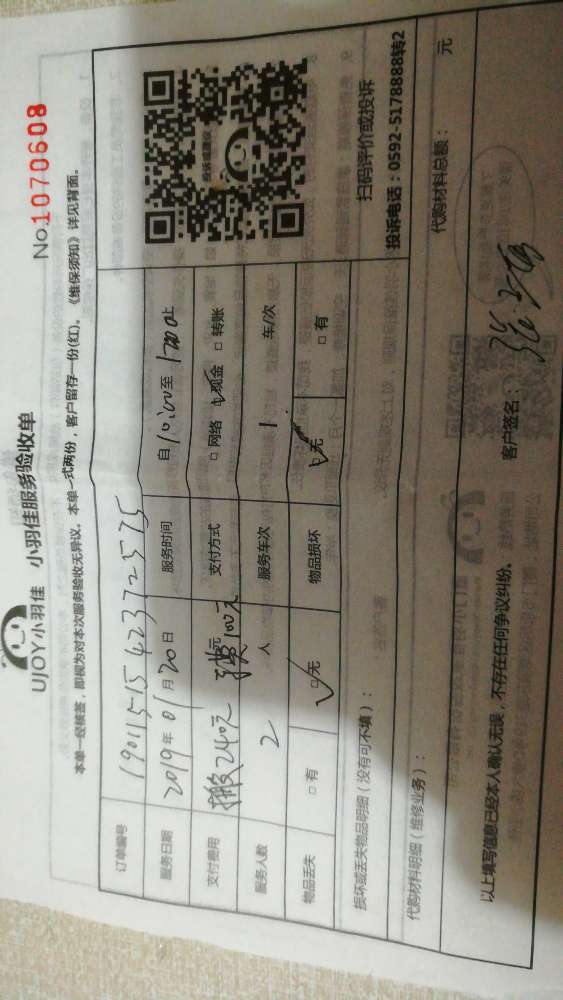 UJOY小羽佳 小羽佳服务验收单
No.1070608
本单一经核签，即视为对本次服务验收无异议。本单一式两份，客户留存一份(红)。《维保须知》详见背面。
订单编号 19011515423725​75
服务日期 2019年01月20日 服务时间 自10:00至 止
支付费用 搬240元 100元 元 支付方式 □网络 ☑现金 □转账
服务人数 2 人 服务车次 1 车/次
物品丢失 □有 ☑无 物品损坏 ☑无 □有
扫码评价或投诉
投诉电话：0592-5178888转2
损坏或丢失物品明细（没有可不填）：
代购材料明细（维修业务）： 代购材料总额： 元
以上填写信息已经本人确认无误，不存在任何争议纠纷。 客户签名：